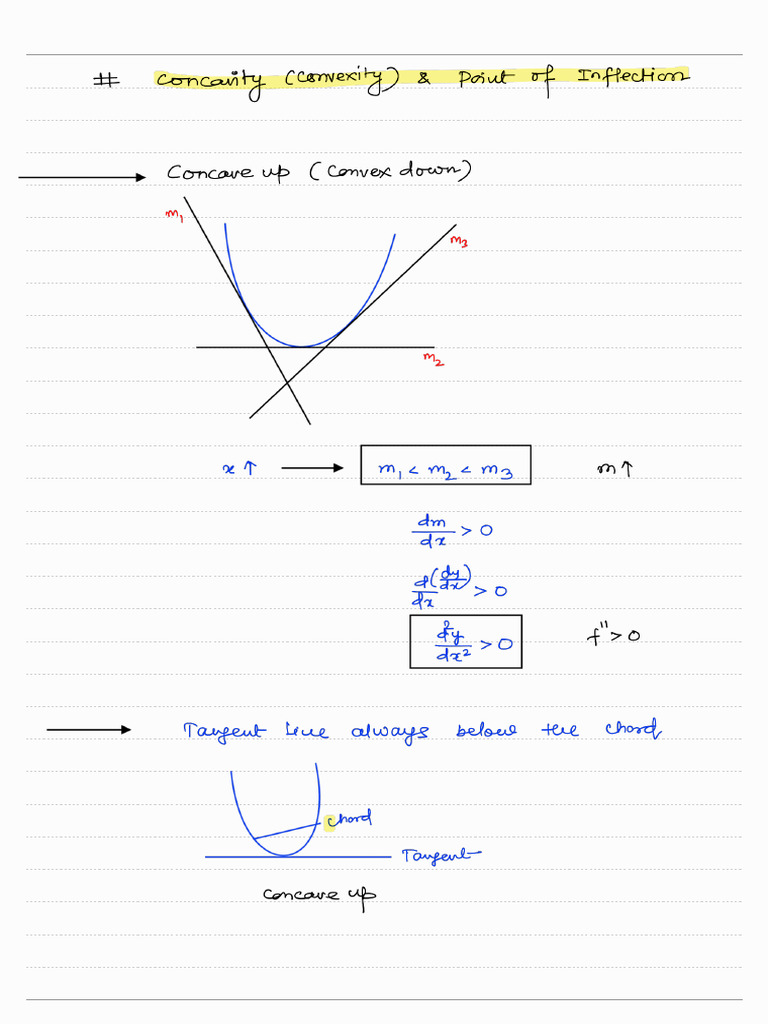 # Concavity (Convexity) & Point of Inflection
Concave up (Convex down)
m₁
m₃
m₂
x ↑ ⟶ m₁ < m₂ < m₃ m↑
dm/dx > 0
d/dx (dy/dx) > 0
d²y/dx² > 0 f'' > 0
Tangent line always below the chord
chord
Tangent
Concave up